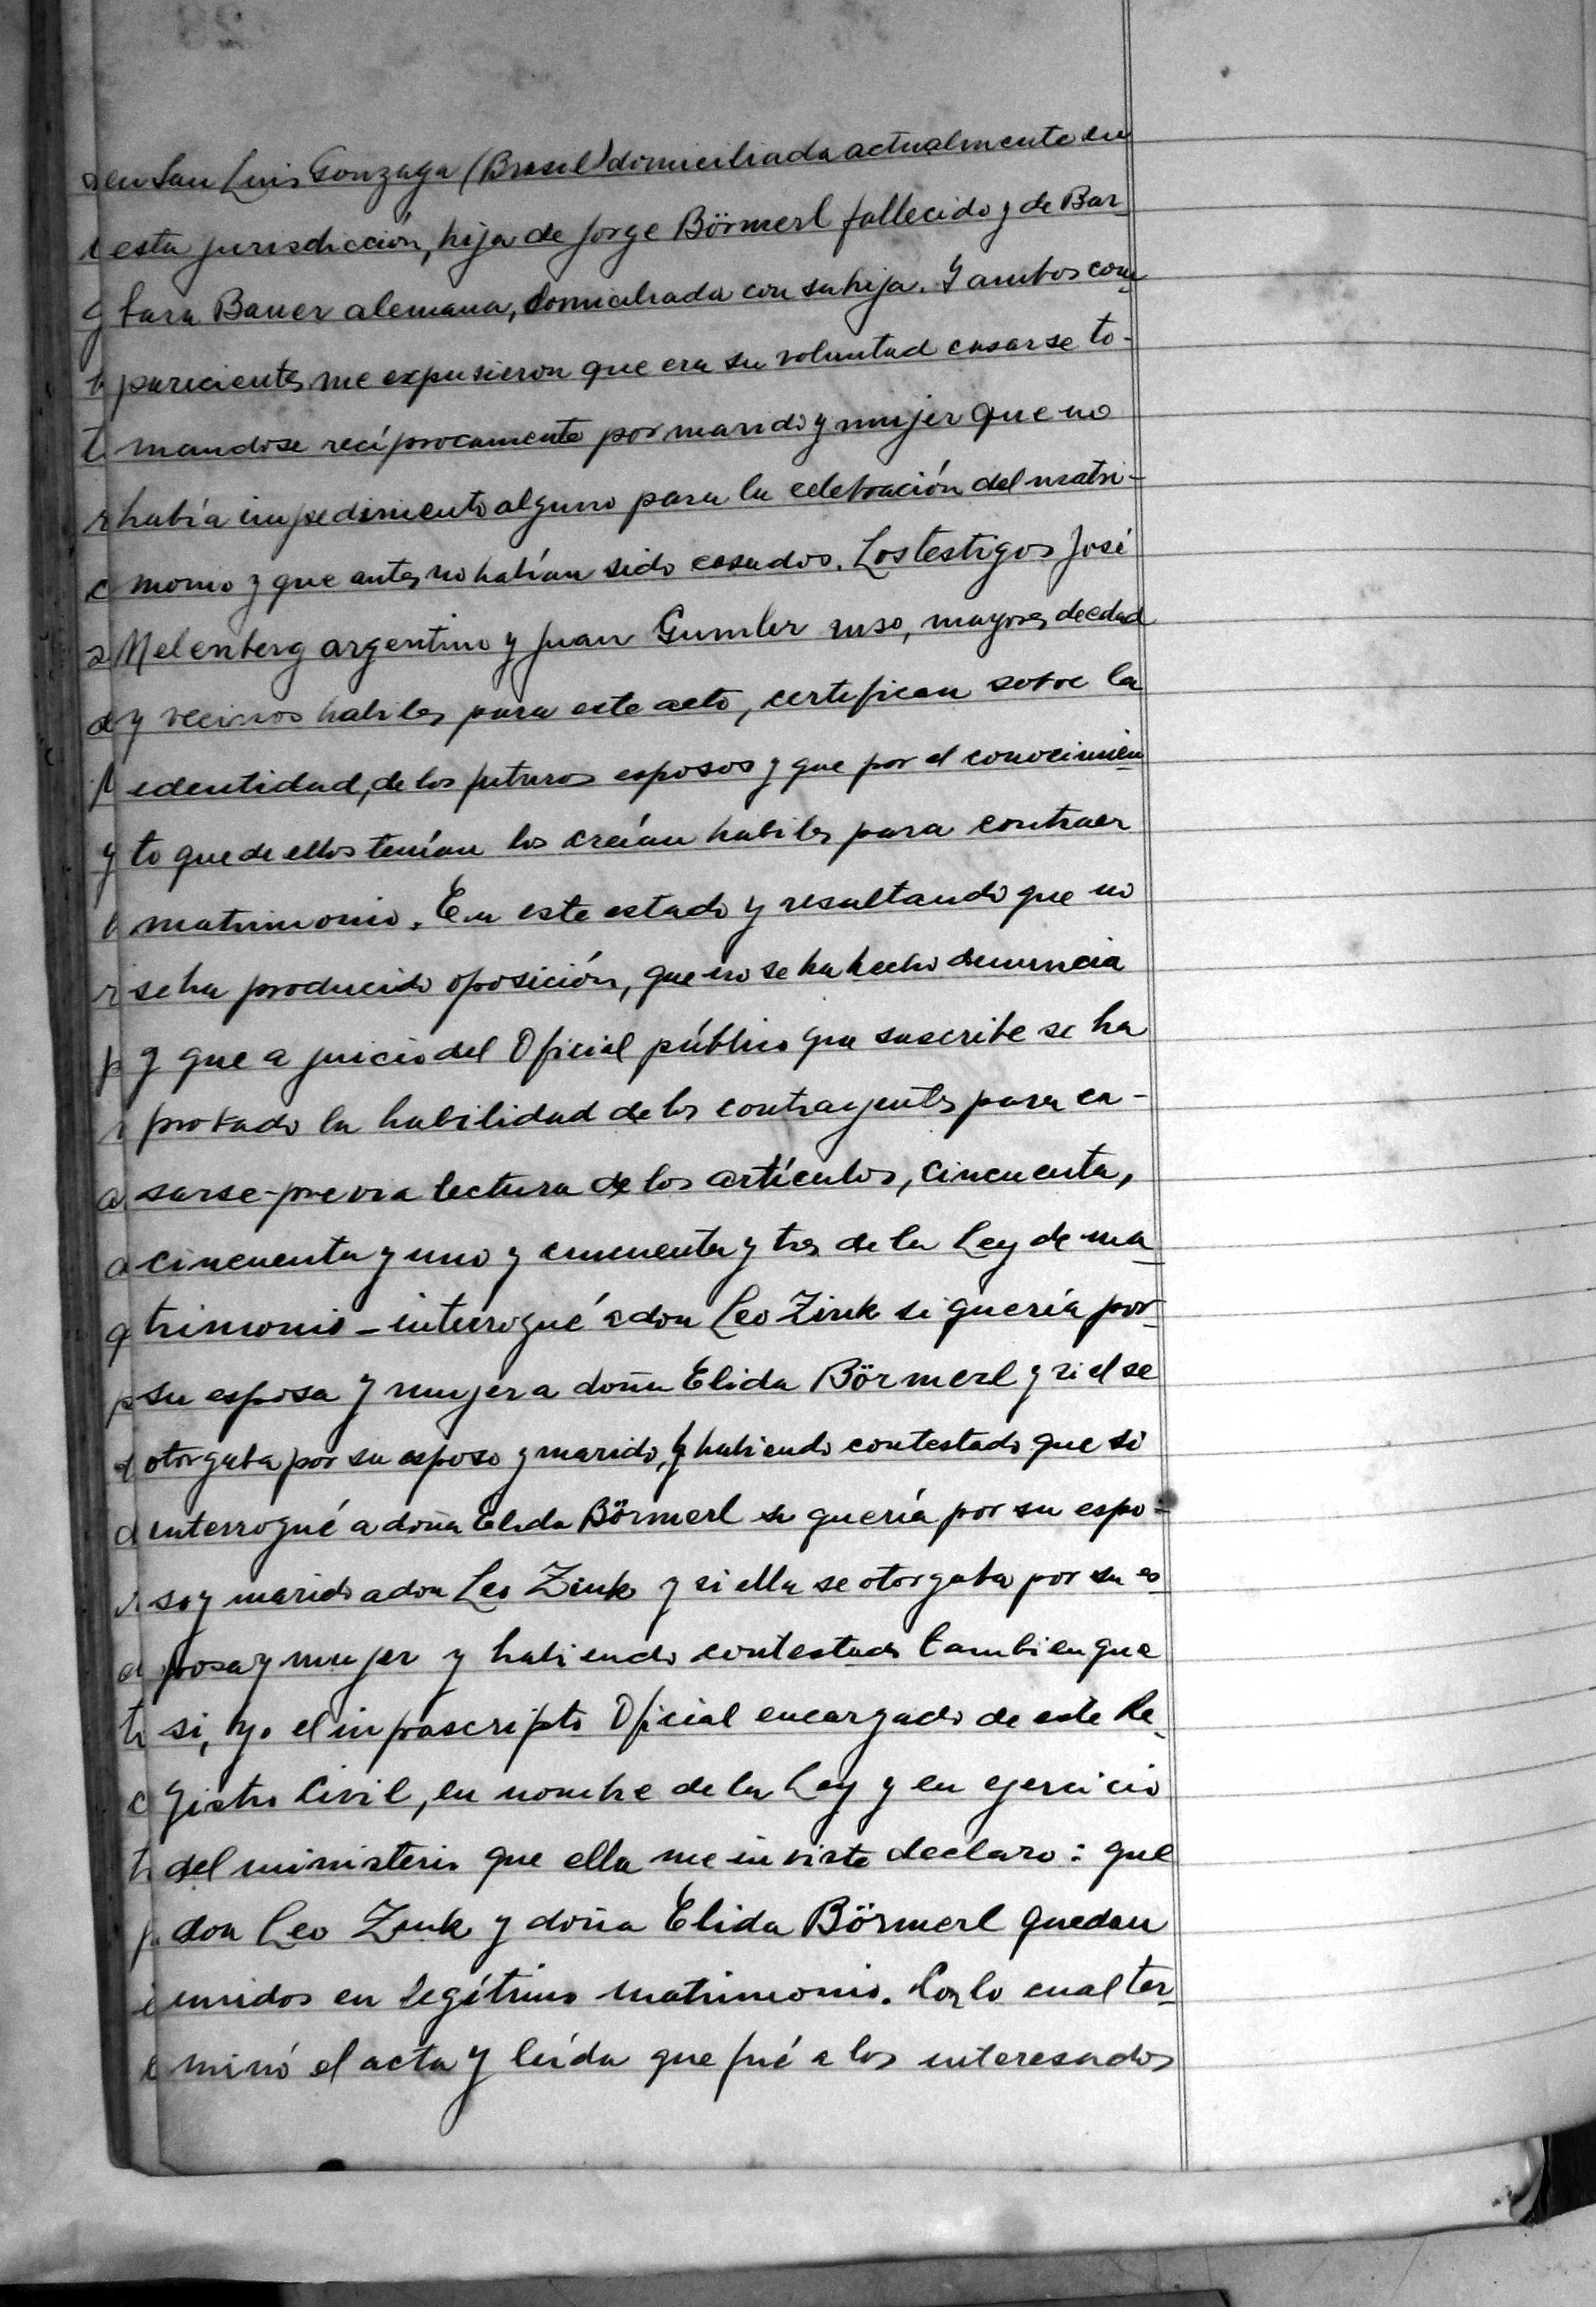 en San Luis Gonzaga (Brasil) domiciliada actualmente en
esta jurisdicción, hija de Jorge Börmerl fallecido y de Bar-
bara Bauer alemana, domiciliada con su hija. Y ambos com-
parecientes me expusieron que era su voluntad casarse to-
mandose recíprocamente por marido y mujer que no
había impedimento alguno para la celebración del matri-
monio y que antes no habían sido casados. Los testigos José
Melenberg argentino y Juan Gumler ruso, mayores de edad
y vecinos habiles para este acto, certifican sobre la
edentidad, de los futuros esposos y que por el conocimien-
to que de ellos tenían los creían habiles para contraer
matrimonio. En este estado y resultando que no
se ha producido oposición, que no se ha hecho denuncia
y que a juicio del Oficial público que suscribe se ha
probado la habilidad de los contrayentes para ca-
sarse - previa lectura de los artículos, cincuenta,
cincuenta y uno y cincuenta y tres de la Ley de ma-
trimonio - interrogué a don Leo Zink si quería por
su esposa y mujer a doña Elida Börmerl y si el se
otorgaba por su esposo y marido, y habiendo contestado que si
interrogué a doña Elida Börmerl si quería por su espo-
so y marido a don Leo Zink y si ella se otorgaba por su es-
posa y mujer y habiendo contestado tambien que
si, yo el infrascripto Oficial encargado de este Re-
gistro Civil, en nombre de la Ley y en ejercicio
del ministerio que ella me inviste declaro: que
don Leo Zink y doña Elida Börmerl quedan
unidos en legítimo matrimonio. Con lo cual ter-
minó el acta y leída que fué a los interesados